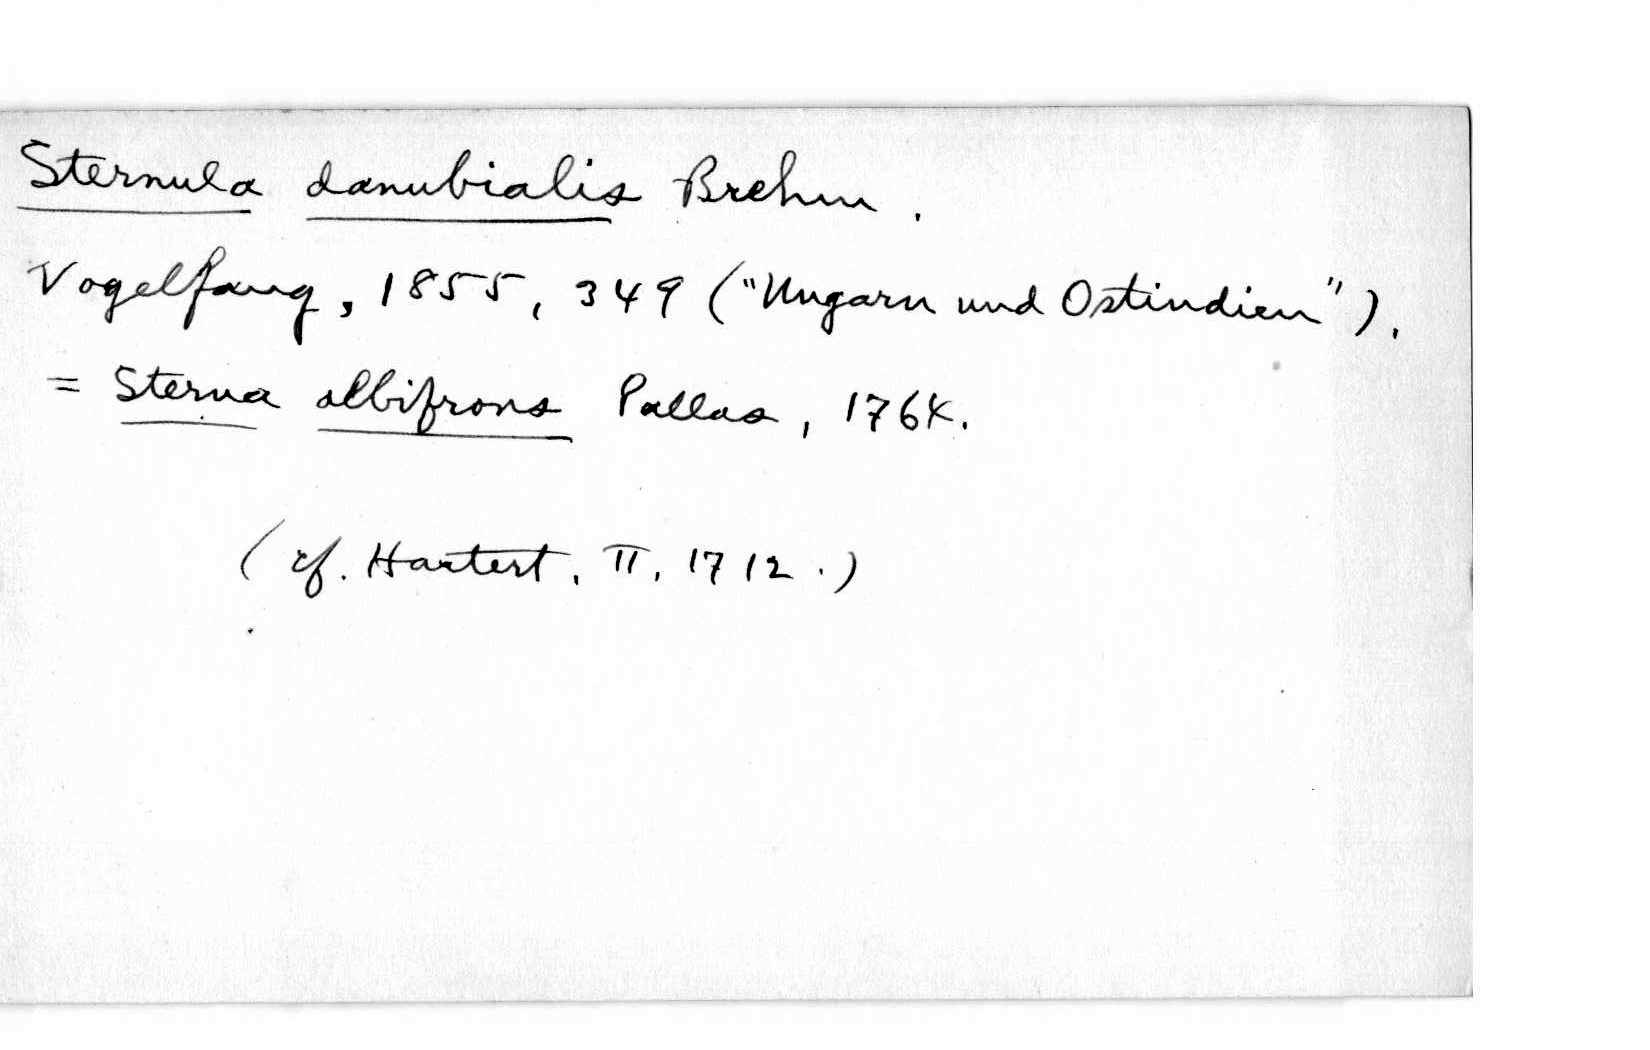 Sternula danubialis Brehm.
Vogelfang, 1855, 349 ("Ungarn und Ostindien").
= Sterna albifrons Pallas, 1764.
(cf. Hartert, II, 1712.)